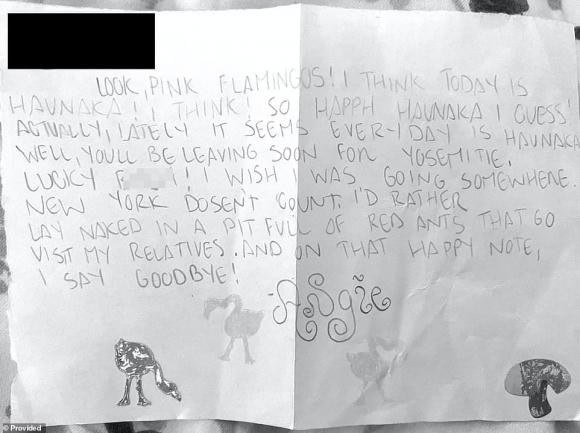 LOOK, PINK FLAMINGOS! I THINK TODAY IS
HAUNAKA! I THINK! SO HAPPH HAUNAKA I GUESS!
ACTUALLY, LATELY IT SEEMS EVERYDAY IS HAUNAKA
WELL, YOU'LL BE LEAVING SOON FOR YOSEMITIE.
LUCKY F ! I WISH I WAS GOING SOMEWHERE.
NEW YORK DOSEN'T COUNT. I'D RATHER
LAY NAKED IN A PIT FULL OF RED ANTS THAT GO
VISIT MY RELATIVES. AND ON THAT HAPPY NOTE,
I SAY GOODBYE!
Angie
© Provided